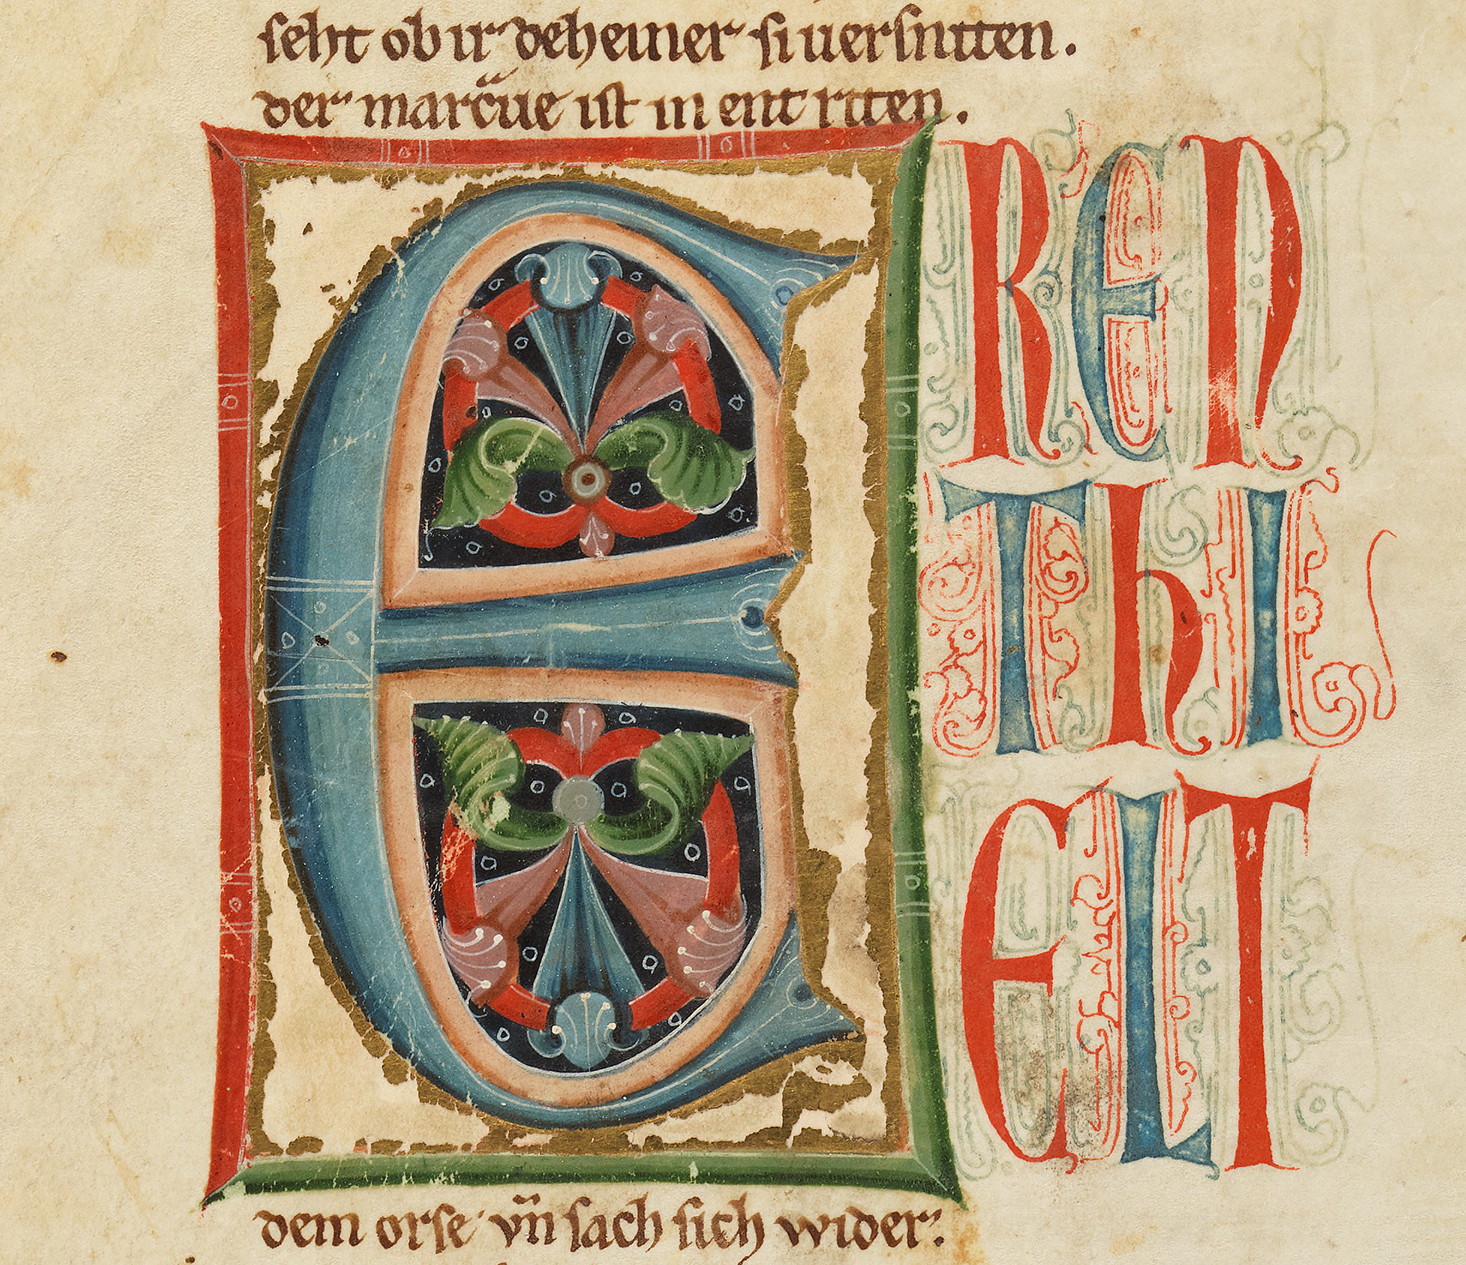 seht ob ir deheiner si uersnitten.
der marcüe ist in ent riten.
EReN
ThI
ELT
dem orse vn̄ sach sich wider.